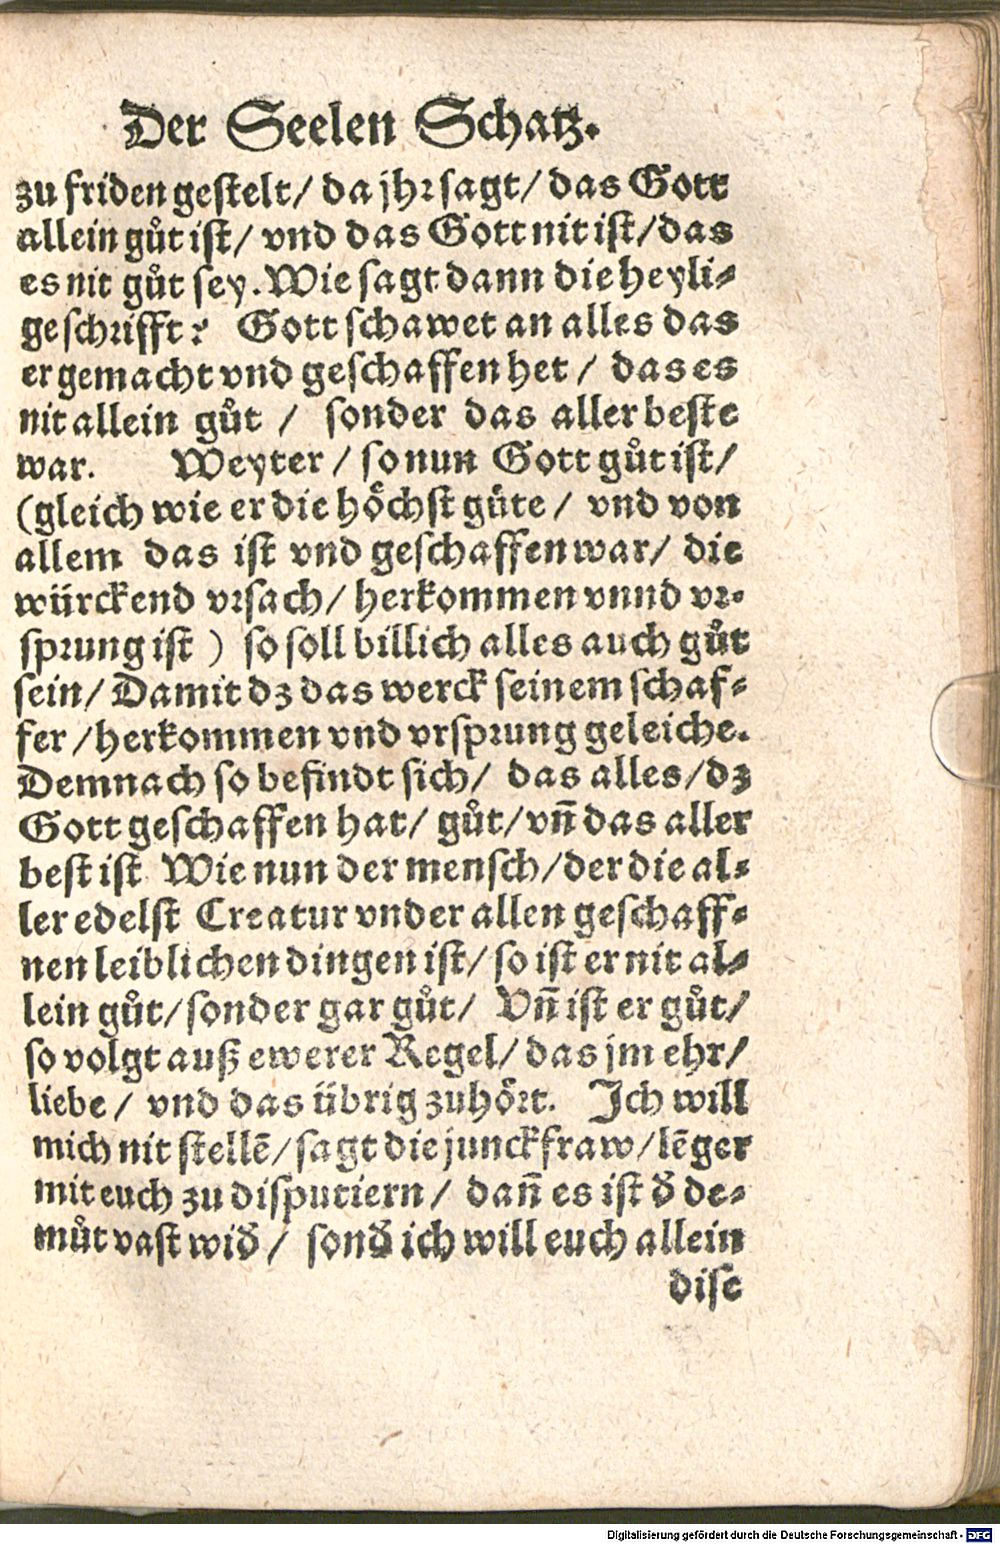 Der Seelen Schatz.
zu friden gestelt/ da jhr sagt/ das Gott
allein gůt ist/ vnd das Gott nit ist/ das
es nit gůt sey. Wie sagt dann die heyli-
ge schrifft? Gott schawet an alles das
er gemacht vnd geschaffen het/ das es
nit allein gůt / sonder das aller beste
war. Weyter/ so nun Gott gůt ist/
(gleich wie er die höchst güte/ vnd von
allem das ist vnd geschaffen war/ die
würckend vrsach/ herkommen vnnd vr-
sprung ist) so soll billich alles auch gůt
sein/ Damit dz das werck seinem schaf-
fer/ herkommen vnd vrsprung geleiche.
Demnach so befindt sich/ das alles/ dz
Gott geschaffen hat/ gůt/ vñ das aller
best ist Wie nun der mensch/ der die al-
ler edelst Creatur vnder allen geschaff-
nen leiblichen dingen ist/ so ist er nit al-
lein gůt/ sonder gar gůt/ Vñ ist er gůt/
so volgt auß ewerer Regel/ das jm ehr/
liebe/ vnd das übrig zuhört. Ich will
mich nit stellē/ sagt die junckfraw/ lēger
mit euch zu disputiern/ dañ es ist đ de-
můt vast wiđ/ sonđ ich will euch allein
dise
Digitalisierung gefördert durch die Deutsche Forschungsgemeinschaft - DFG